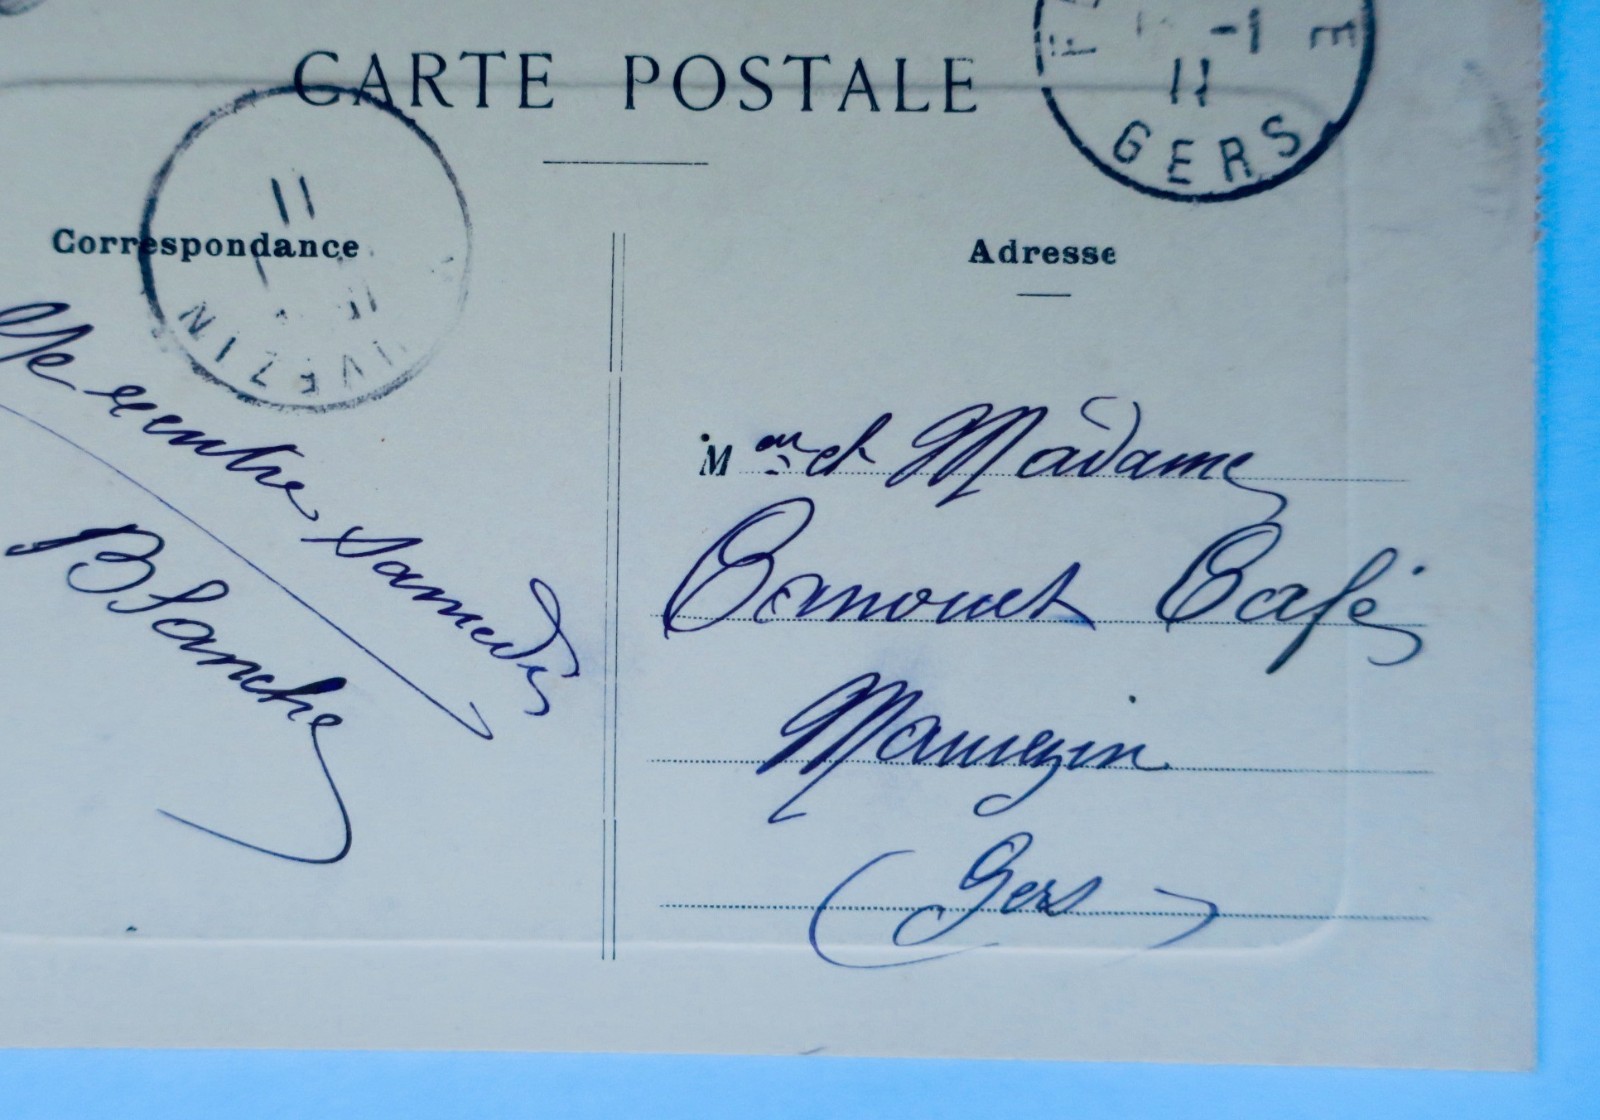 CARTE POSTALE
-1
11
GERS
11
Correspondance
Adresse
Je rentre samedi
Blanche
M et Madame
Canouet Café
Mauvezin
(Gers)